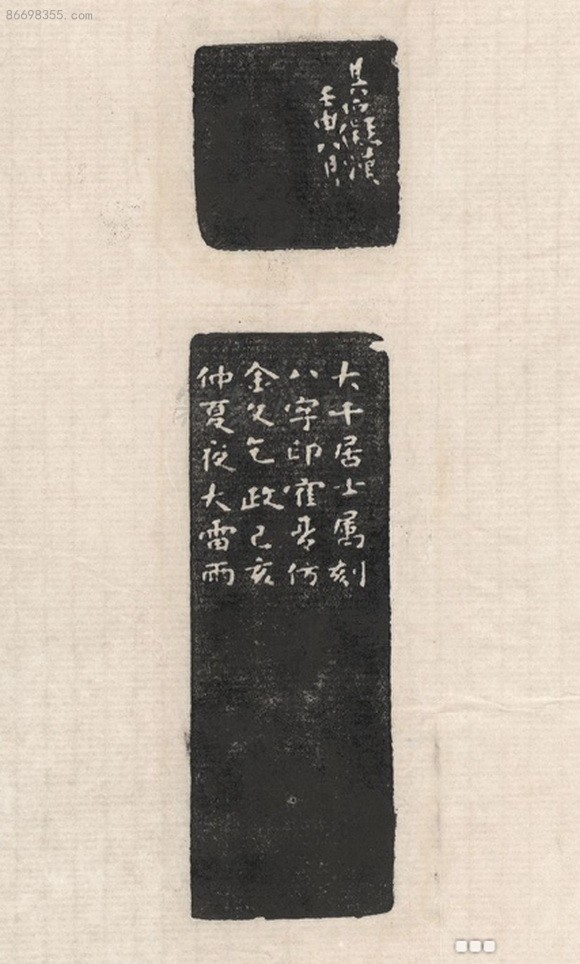 86698355.com
壬申八月
大千居士属刻
八字印仿
金文乞政己亥
仲夏夜大雷雨